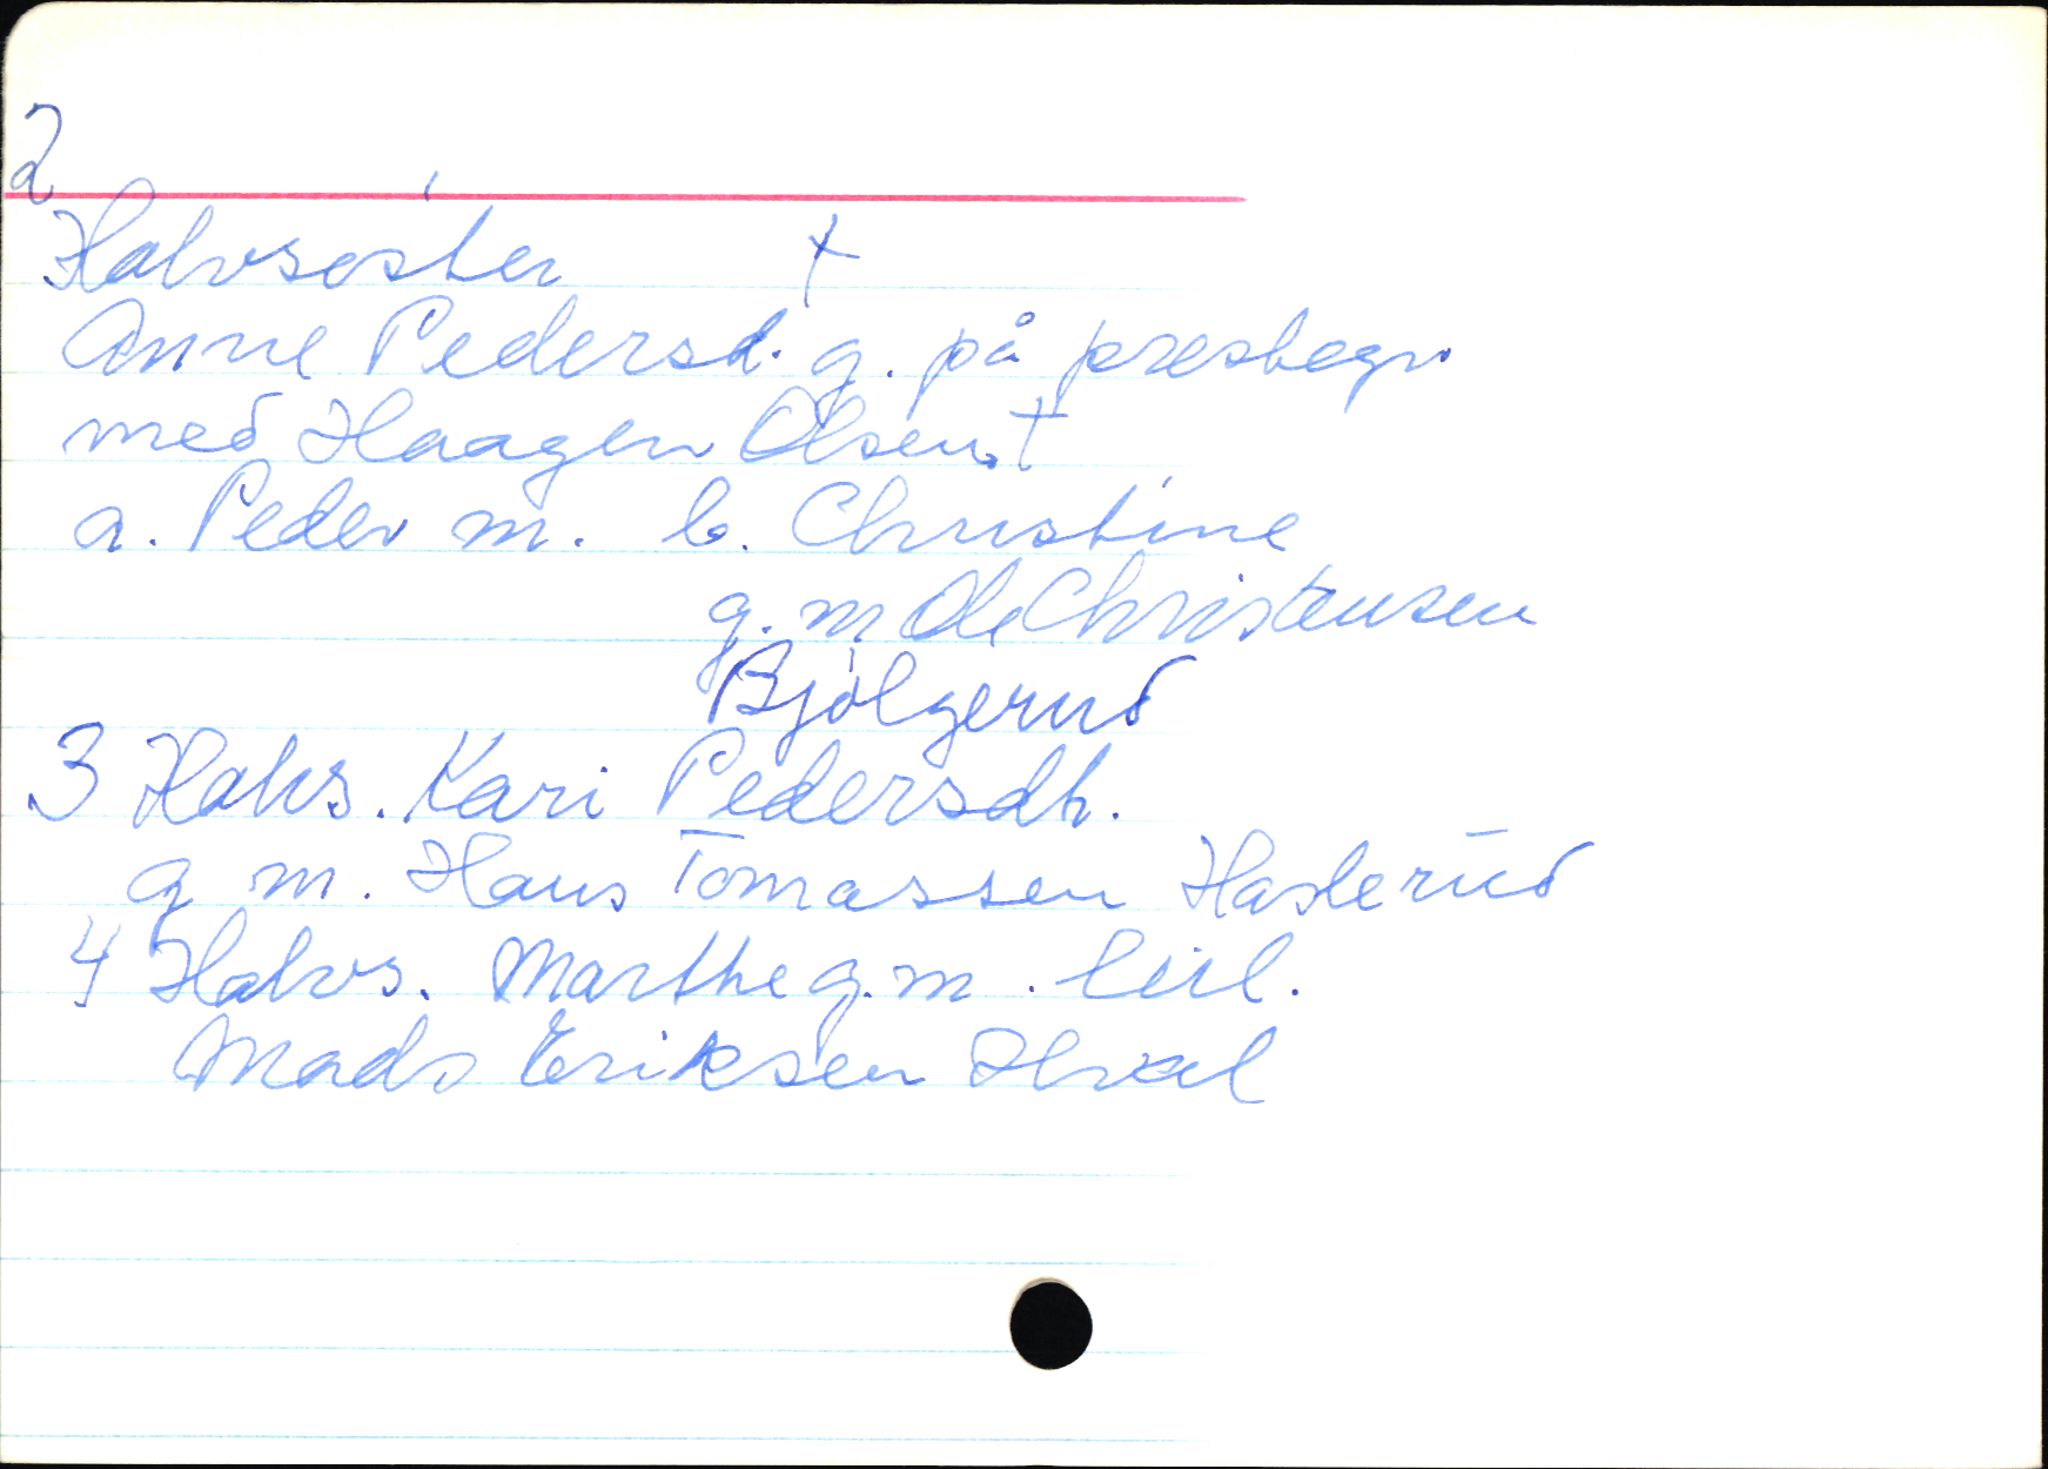 2
Halvsøster †
Anne Pedersd. g. på prestegr.
med Haagen Olsen. †
a. Peder m. b. Christine
g. m Ole Christensen
Bjølgerud
3 Halvs. Kari Pedersdt.
g m. Hans Tomassen Haslerud
4 Halvs. Marthe g. m. leil.
Mads Eriksen Hval